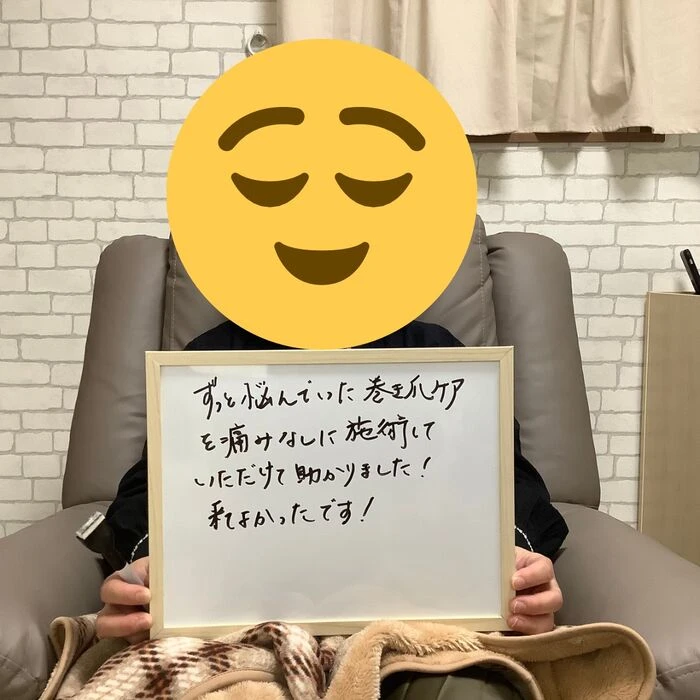 ずっと悩んでいた巻き爪ケア
を痛みなしに施術して
いただけて助かりました！
来てよかったです！